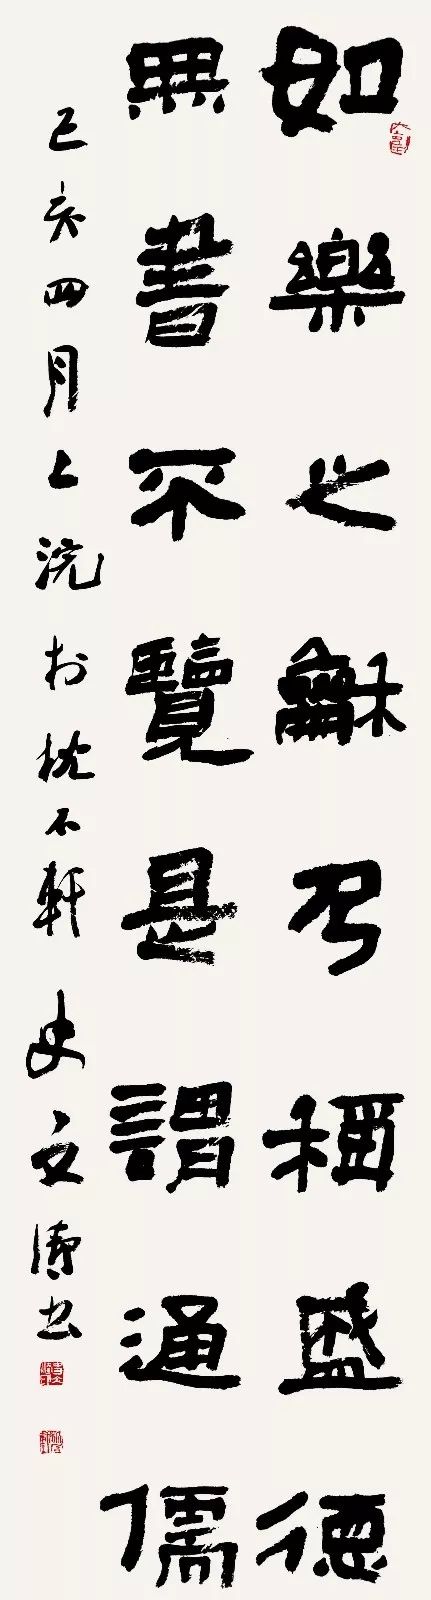 如樂之龢乃稱盛德
無書不覽是謂通儒
己亥四月上浣於枕石軒史文清书